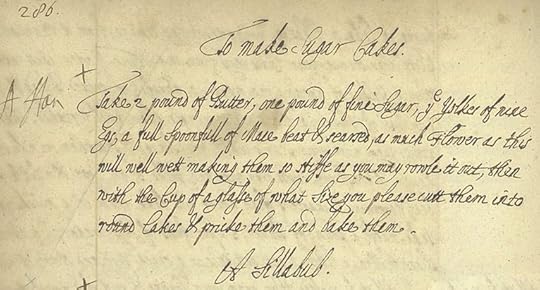 286.
To make Sugar Cakes.
+
Take 2 pound of Butter, one pound of fine Sugar, yͤ Yolkes of nine
Egs, a full Spoonfull of Mace beat & searsed, as much Flower as this
will well wett making them so stiffe as you may rowle it out, then
with the Cup of a glasse of what Size you please cutt them into
round Cakes & pricke them and bake them.
A Sillabub.
+